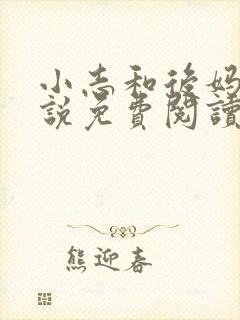 小志和後妈
說免費閱讀
熊迎春